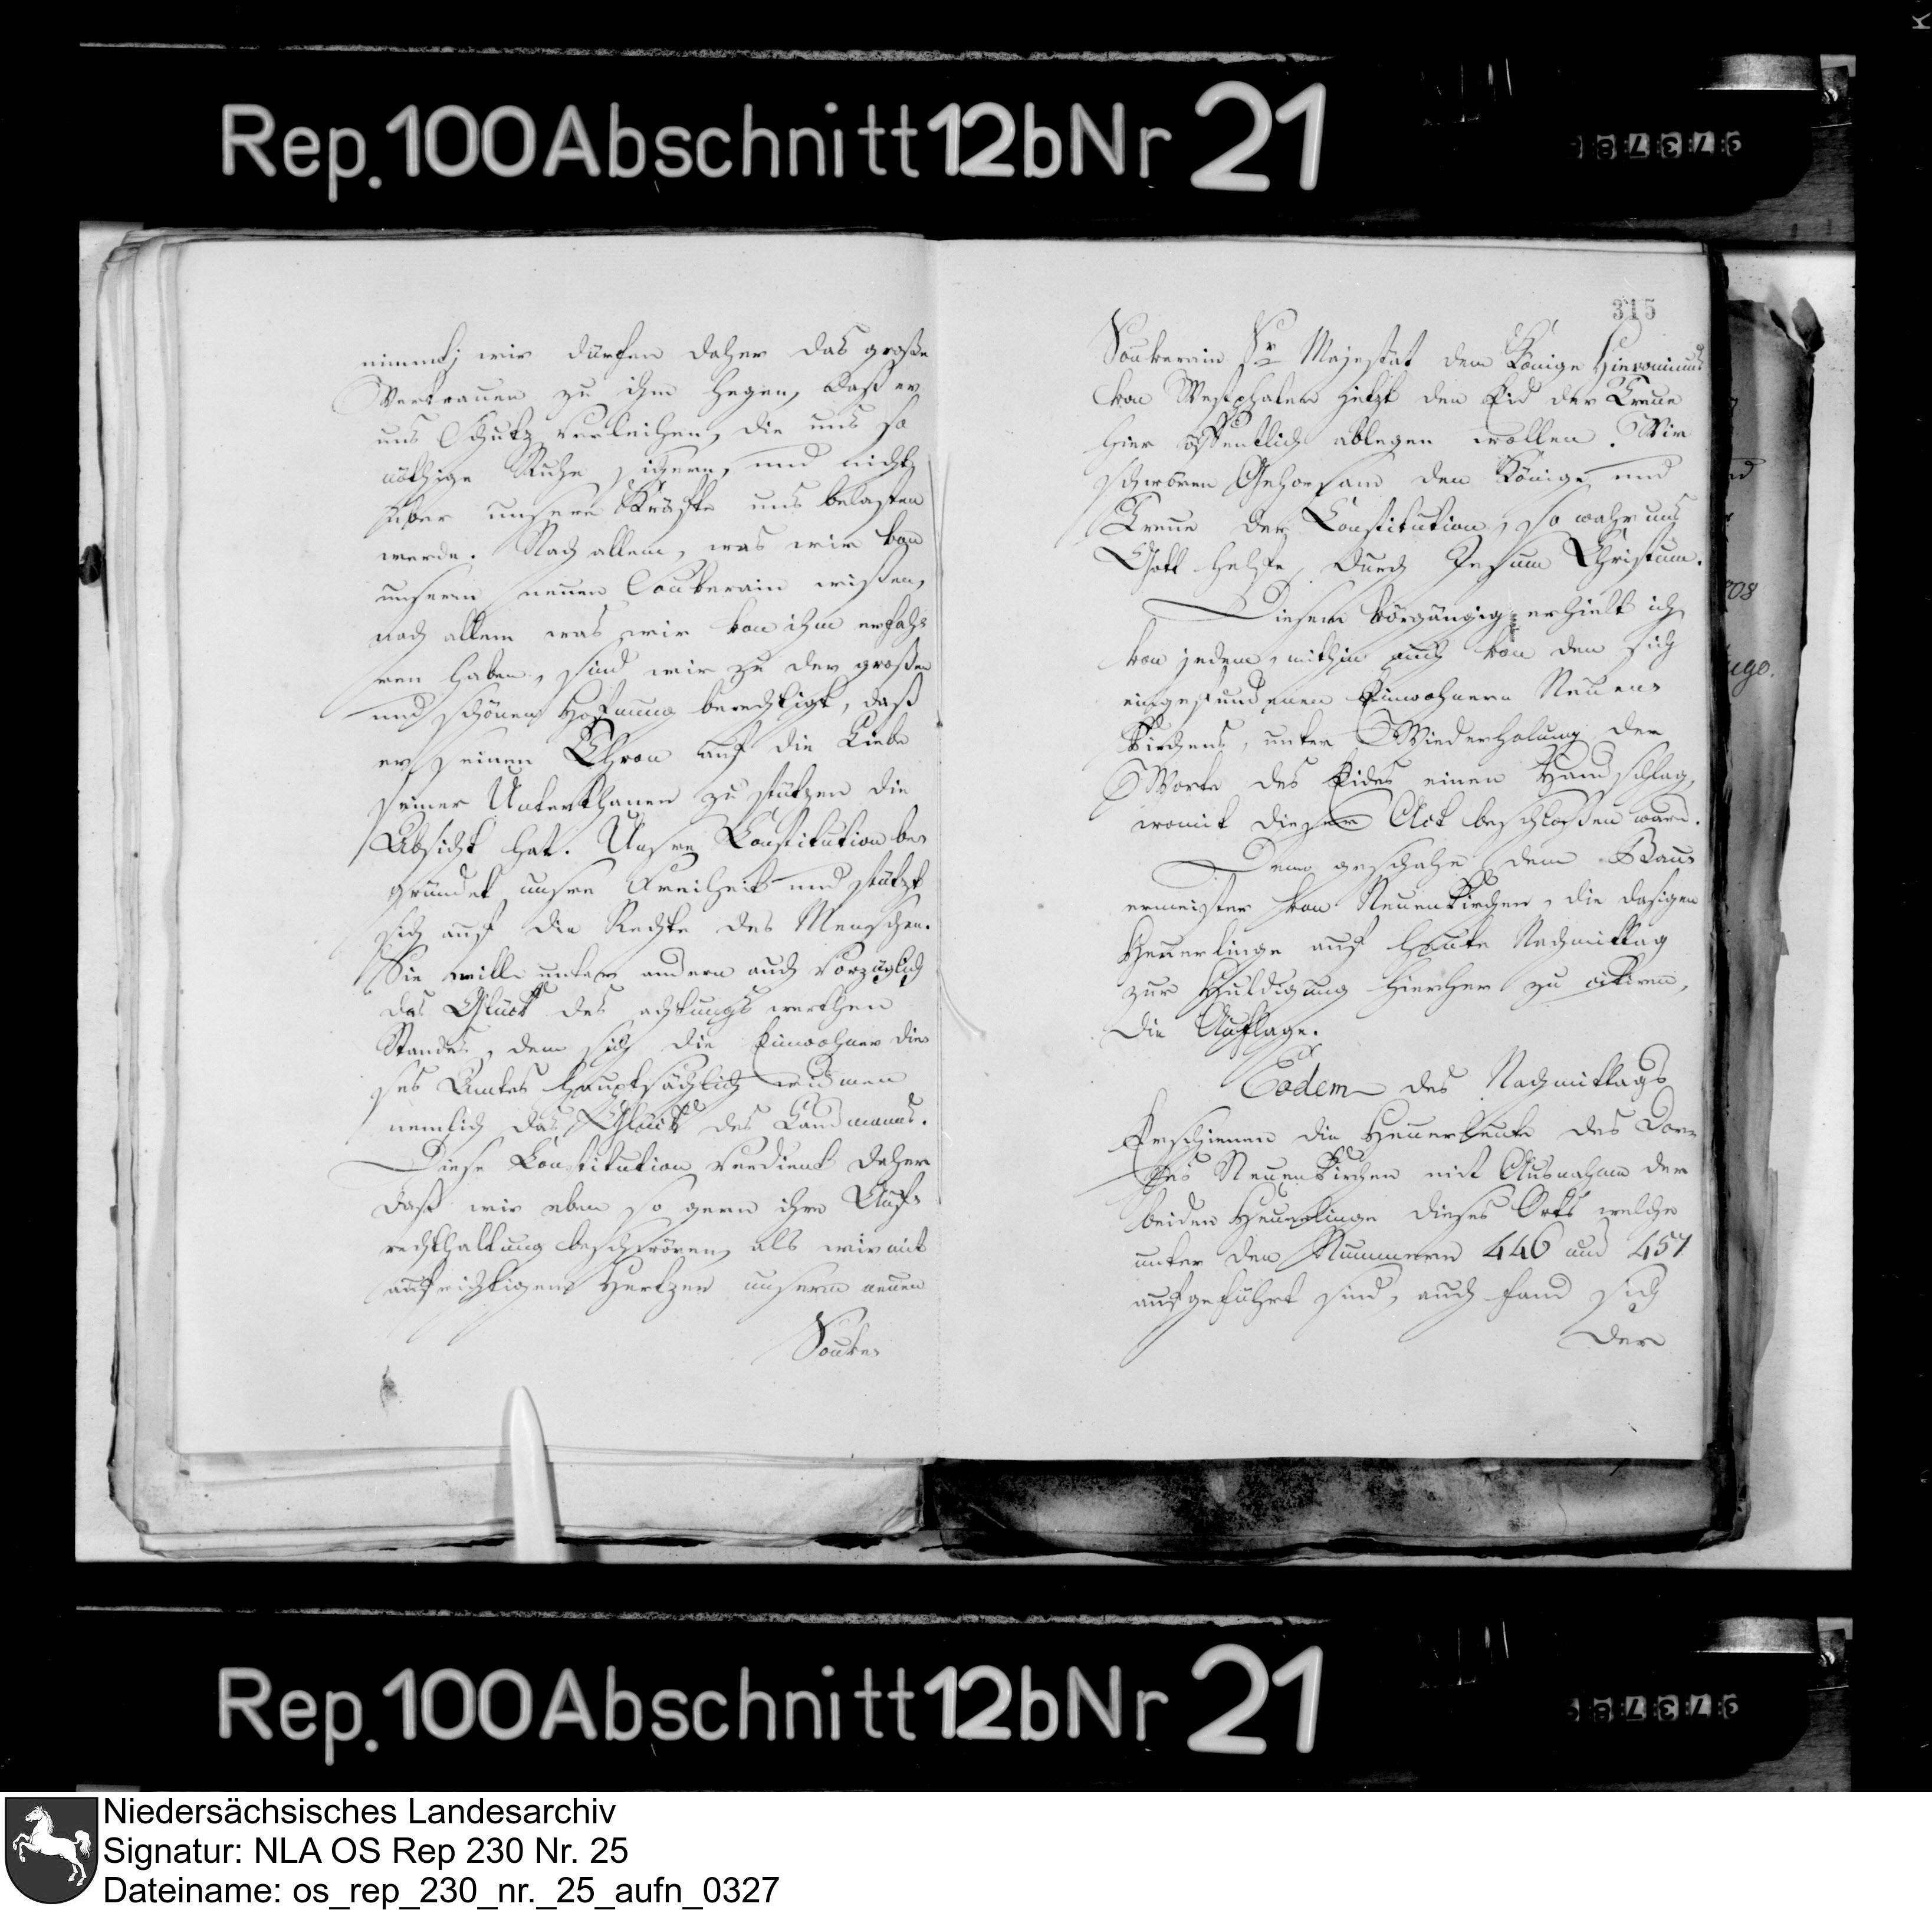 Rep.100 Abschnitt 12b Nr 21
nimmt; wir dürfen daher das große
Vertrauen zu ihm hegen, daß er
uns Schutz verleihen, die uns so
nöthige Ruhe sichern, und nicht
über unsere Kräfte uns belasten
werde. Nach allem, was wir von
unserm neuen Souverain wißen,
nach allem was wir von ihm erfah-
ren haben, sind wir zu der großen
und schönen Hofnung berechtigt, daß
er seinen Thron auf die Liebe
seiner Unterthanen zu stützen die
Absicht hat. Unsre Constitution be-
gründet unsre Freiheit und stützt
sich auf die Rechte des Menschen.
Sie will unter andern auch vorzüglich
das Glück des achtungswerthen
Standes, dem sich die Einwohner die-
ses Amtes hauptsächlich widmen
nemlich das Glück des Landmanns.
Diese Constitution verdient daher
daß wir eben so gern ihre Auf-
rechthaltung beschwören, als wir mit
aufrichtigem Hertzen unserm neuen
Souve-
315
Souverain Sr Majestät dem Könige Hieronimus
von Westphalen jetzt den Eid der Treue
hier öffentlich ablegen wollen. Wir
schwören Gehorsam dem Könige und
Treue der Constitution, so wahr uns
Gott helfe, durch Jesum Christum.
Diesem vorgängig erhielt ich
von jedem, mithin auch von den sich
eingefundenen Einwohnern Neuen-
kirchens, unter Wiederholung der
Worte des Eides einen Handschlag,
womit dieser Act beschloßen ward.
Demo geschahe dem Bau-
ermeister von Neuenkirchen, die dasigen
Heuerlinge auf heute Nachmittag
zur Huldigung hierher zu citiren,
die Auflage.
Eodem des Nachmittags
Erschienen die Heuerleute des Dor-
fes Neuenkirchen mit Ausnahme der
beiden Heuerlinge dieses Orts welche
unter den Nummern 446 und 457
aufgeführt sind, auch fand sich
der
Rep.100 Abschnitt 12b Nr 21
Niedersächsisches Landesarchiv
Signatur: NLA OS Rep 230 Nr. 25
Dateiname: os_rep_230_nr._25_aufn_0327